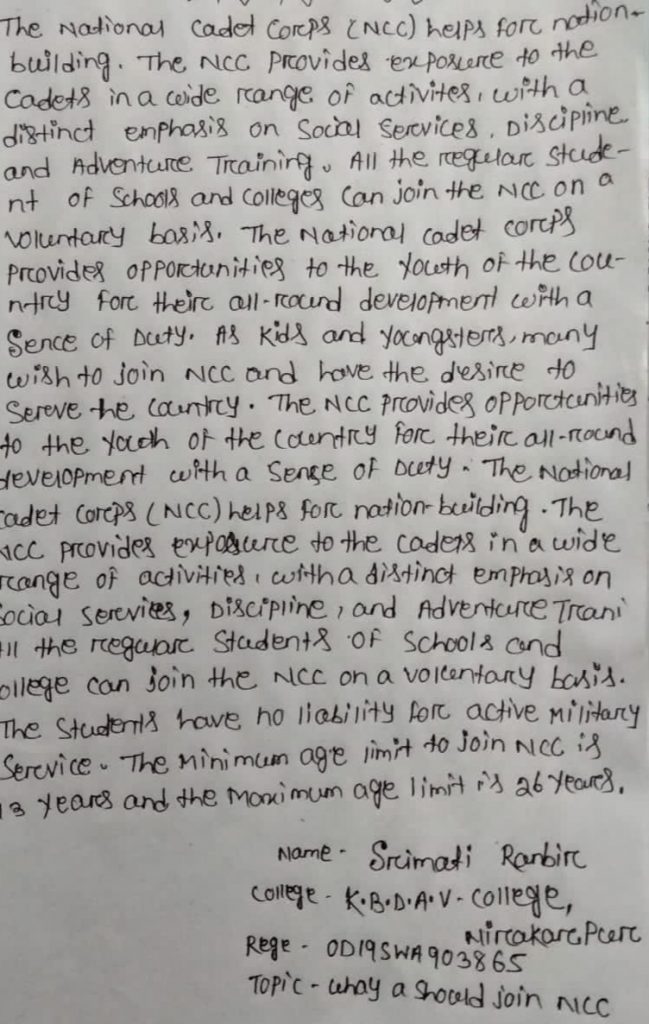 The National Cadet Corps (NCC) helps for nation-
building. The NCC Provides exposure to the
Cadets in a wide range of activites, with a
distinct emphasis on Social Services, Discipine
and Adventure Training. All the regular Stude-
nt of Schools and Colleges Can join the NCC on a
voluntary basis. The National cadet corps
provides opportunities to the youth of the cou-
ntry for their all-round development with a
Sence of Duty. As Kids and youngsters, many
wish to join NCC and have the desire to
Sereve the country. The NCC provides opportunities
to the youth of the country for their all-round
development with a Sense of Duty. The National
cadet corps (NCC) helps for nation-building. The
NCC provides exposure to the cadets in a wide
range of activities, with a distinct emphasis on
Social Services, Discipline, and Adventure Trani
All the regular Students of Schools and
ollege can join the NCC on a voluntary basis.
The Students have no liability for active Military
Service. The Minimum age limit to join NCC is
13 years and the Maximum age limit is 26 years.
Name- Srimati Ranbir
College- K.B.D.A.V- College,
Nirakarpur
Rege- OD19SWA903865
Topic- whay a Should join NCC